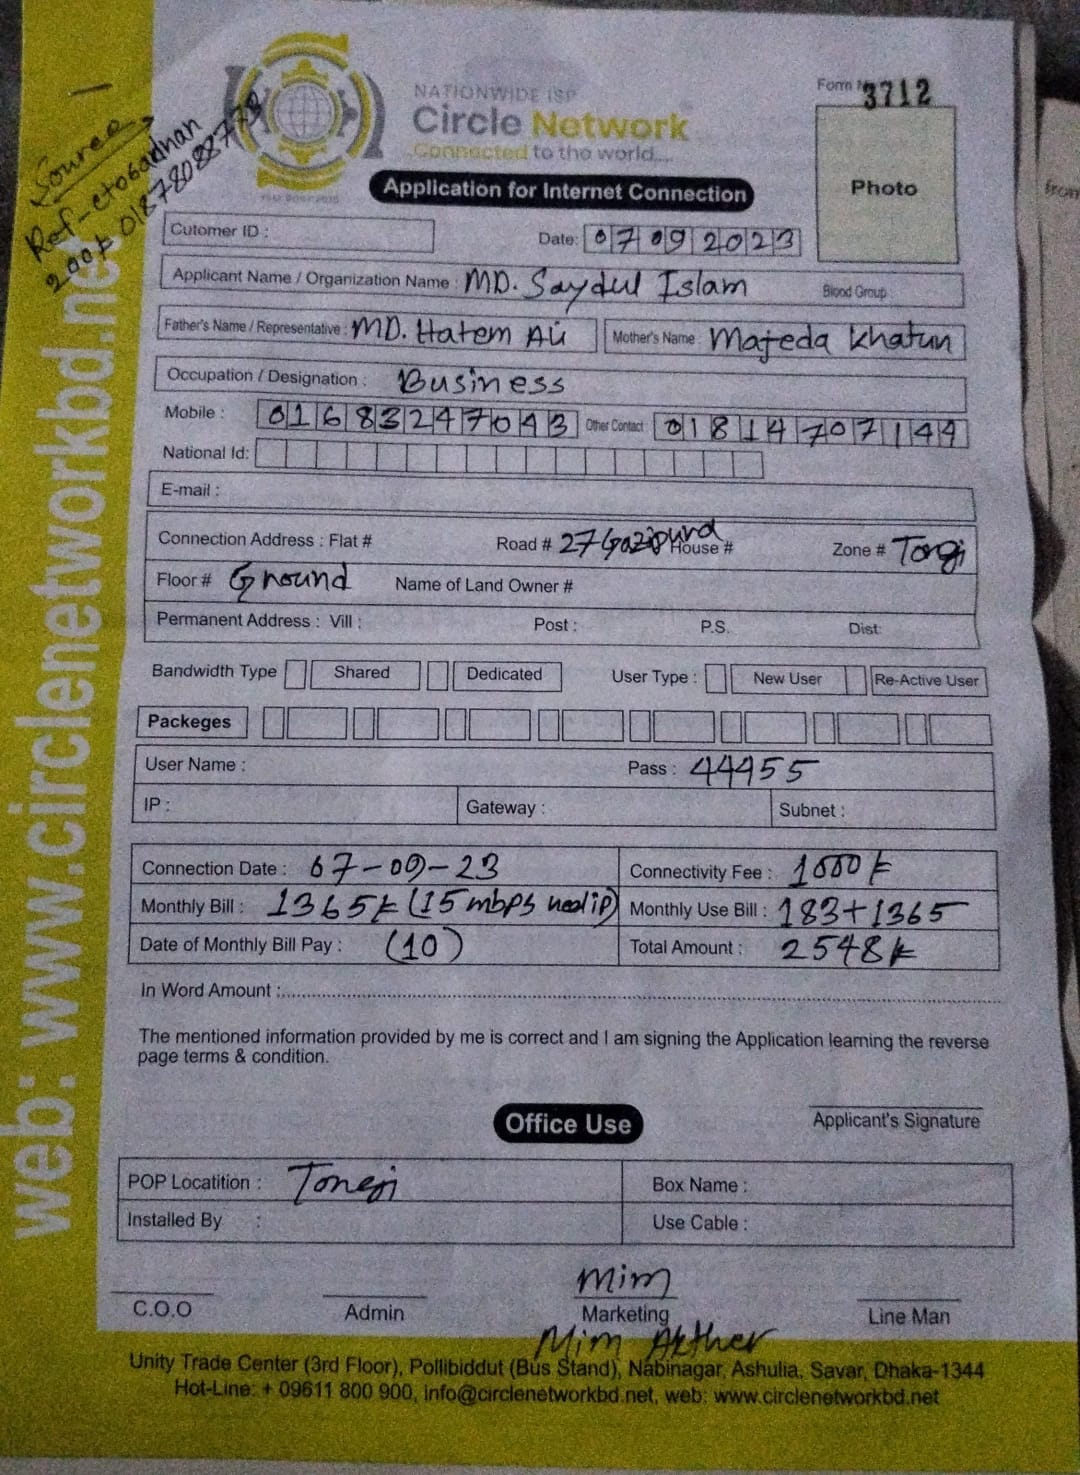 Source
Ref-
200৳ 01878088778
NATIONWIDE ISP
Circle Network
Connected to the world....
Form No
3712
Photo
Application for Internet Connection
Cutomer ID :
Date: 07 09 2023
Applicant Name / Organization Name : MD. Saydul Islam
Blood Group
Father's Name / Representative : MD. Hatem Ali
Mother's Name : Majeda Khatun
Occupation / Designation : Business
Mobile : 01683247043
Other Contact 01814707144
National Id:
E-mail :
Connection Address : Flat # Road # 27 Gazipura House # Zone # Tongi
Floor # Ground Name of Land Owner #
Permanent Address : Vill : Post : P.S. Dist:
Bandwidth Type Shared Dedicated User Type : New User Re-Active User
Packeges
User Name : Pass : 44455
IP : Gateway : Subnet :
Connection Date : 07-09-23 Connectivity Fee : 1000৳
Monthly Bill : 1365৳ (15 mbps Monthly Use Bill : 183+1365
Date of Monthly Bill Pay : (10) Total Amount : 2548৳
In Word Amount :
The mentioned information provided by me is correct and I am signing the Application learning the reverse
page terms & condition.
Applicant's Signature
Office Use
POP Locatition : Tongi Box Name :
Installed By : Use Cable :
Mim
C.O.O Admin Marketing Line Man
Mim Akther
Unity Trade Center (3rd Floor), Pollibiddut (Bus Stand), Nabinagar, Ashulia, Savar, Dhaka-1344
Hot-Line: + 09611 800 900, info@circlenetworkbd.net, web: www.circlenetworkbd.net
web: www.circlenetworkbd.net
from